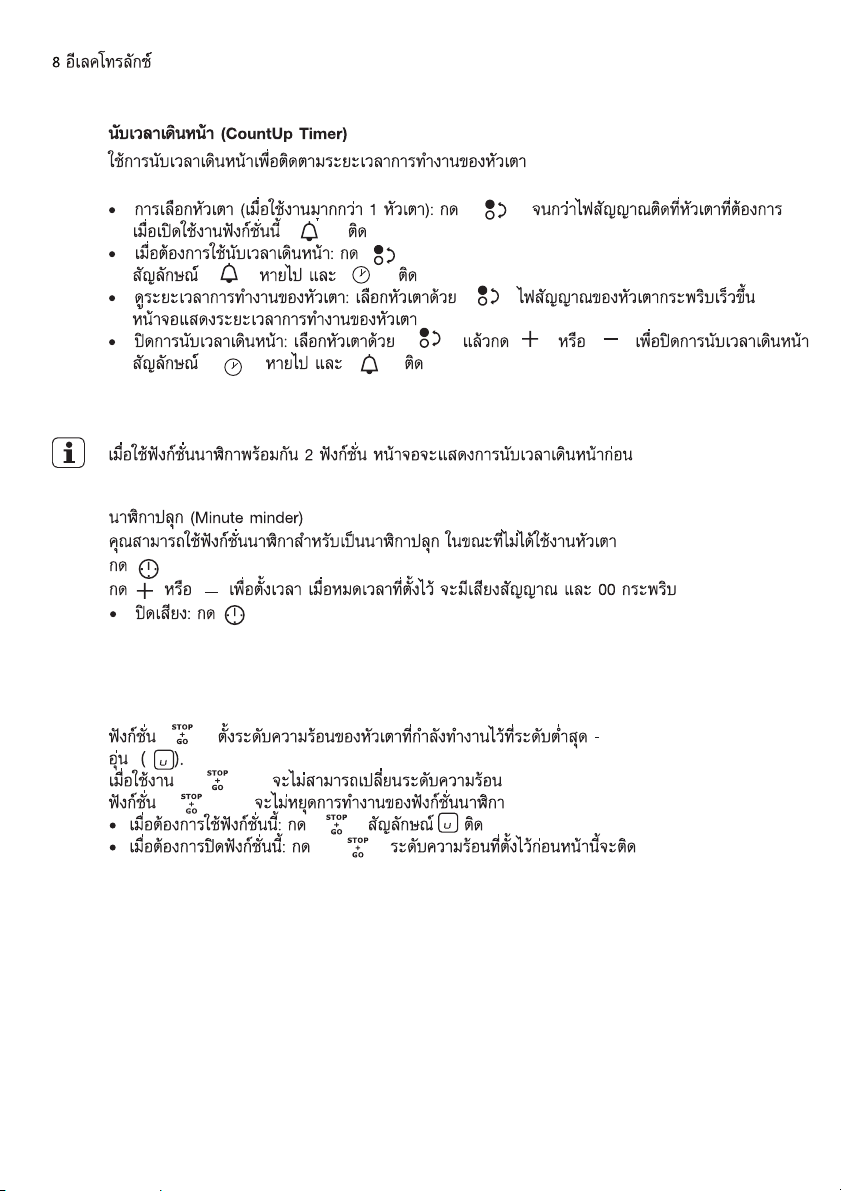 8 อีเลคโทรลักซ์
นับเวลาเดินหน้า (CountUp Timer)
ใช้การนับเวลาเดินหน้าเพื่อติดตามระยะเวลาการทำงานของหัวเตา
• การเลือกหัวเตา (เมื่อใช้งานมากกว่า 1 หัวเตา): กด จนกว่าไฟสัญญาณติดที่หัวเตาที่ต้องการ
เมื่อเปิดใช้งานฟังก์ชั่นนี้ ติด
• เมื่อต้องการใช้นับเวลาเดินหน้า: กด
สัญลักษณ์ หายไป และ ติด
• ดูระยะเวลาการทำงานของหัวเตา: เลือกหัวเตาด้วย ไฟสัญญาณของหัวเตากระพริบเร็วขึ้น
หน้าจอแสดงระยะเวลาการทำงานของหัวเตา
• ปิดการนับเวลาเดินหน้า: เลือกหัวเตาด้วย แล้วกด + หรือ − เพื่อปิดการนับเวลาเดินหน้า
สัญลักษณ์ หายไป และ ติด
i เมื่อใช้ฟังก์ชั่นนาฬิกาพร้อมกัน 2 ฟังก์ชั่น หน้าจอจะแสดงการนับเวลาเดินหน้าก่อน
นาฬิกาปลุก (Minute minder)
คุณสามารถใช้ฟังก์ชั่นนาฬิกาสำหรับเป็นนาฬิกาปลุก ในขณะที่ไม่ได้ใช้งานหัวเตา
กด
กด + หรือ − เพื่อตั้งเวลา เมื่อหมดเวลาที่ตั้งไว้ จะมีเสียงสัญญาณ และ 00 กระพริบ
• ปิดเสียง: กด
ฟังก์ชั่น STOP+GO ตั้งระดับความร้อนของหัวเตาที่กำลังทำงานไว้ที่ระดับต่ำสุด -
อุ่น ( u ).
เมื่อใช้งาน STOP+GO จะไม่สามารถเปลี่ยนระดับความร้อน
ฟังก์ชั่น STOP+GO จะไม่หยุดการทำงานของฟังก์ชั่นนาฬิกา
• เมื่อต้องการใช้ฟังก์ชั่นนี้: กด STOP+GO สัญลักษณ์ u ติด
• เมื่อต้องการปิดฟังก์ชั่นนี้: กด STOP+GO ระดับความร้อนที่ตั้งไว้ก่อนหน้านี้จะติด